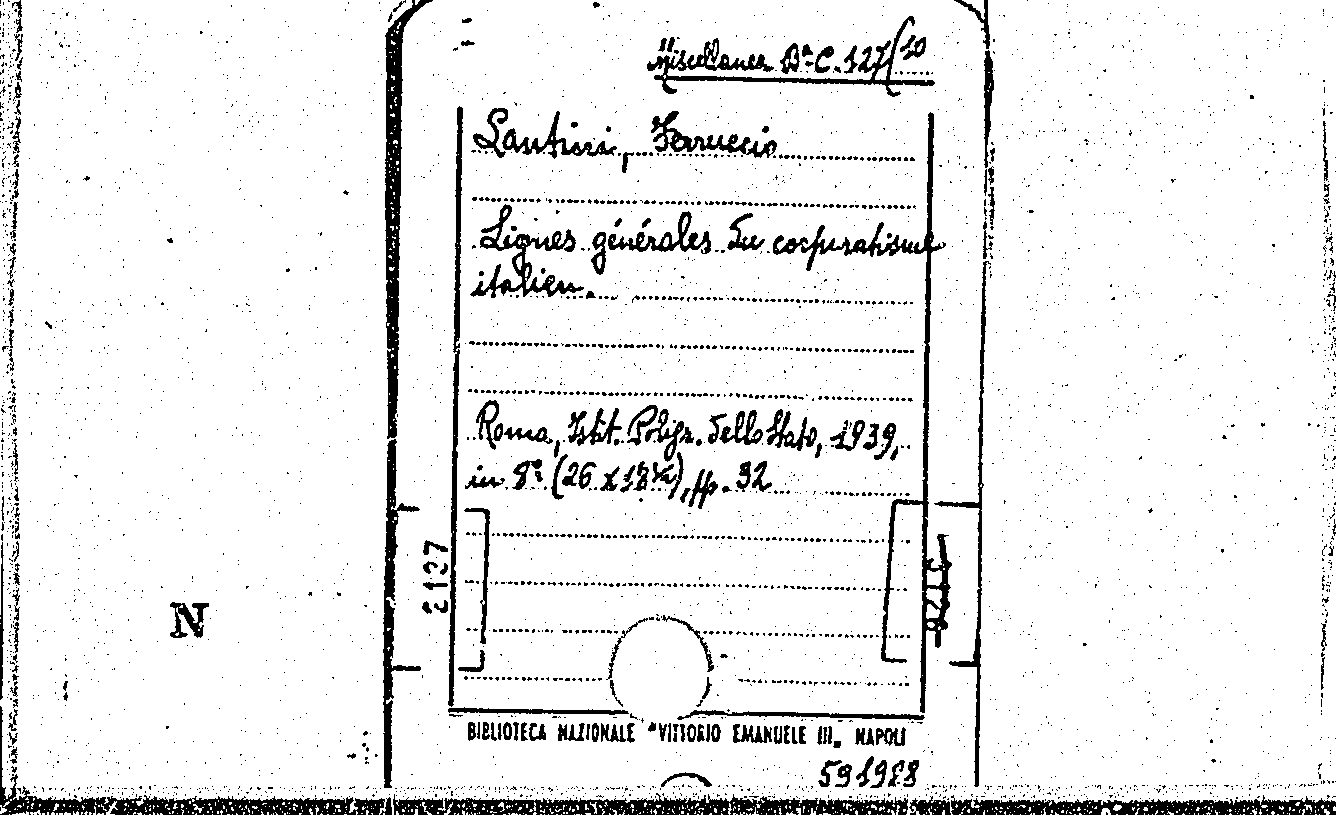 Miscellanea Bª C. 127/10
Lantini, Ferruccio
Lignes générales du corporatisme
italien.
Roma, Istit. Poligr. dello Stato, 1939,
in 8º (26 x 18½), pp. 32
2137
3126
N
BIBLIOTECA NAZIONALE "VITTORIO EMANUELE III„ NAPOLI
591988